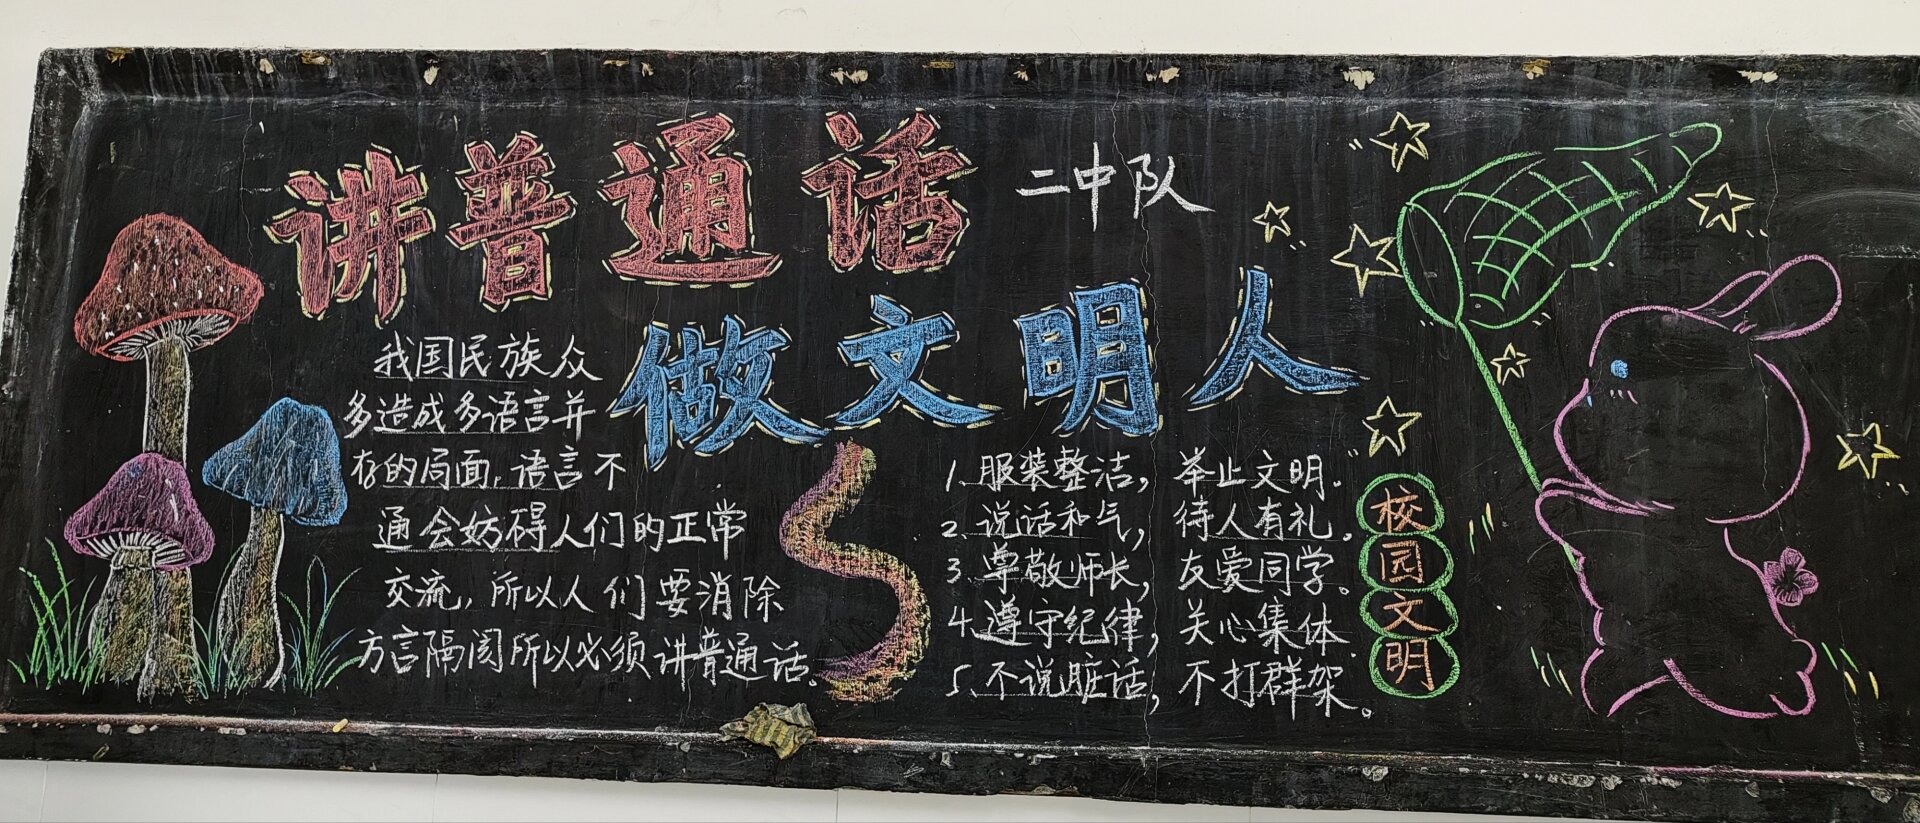 讲普通话
二中队
做文明人
我国民族众
多造成多语言并
存的局面,语言不
通会妨碍人们的正常
交流,所以人们要消除
方言隔阂所以必须讲普通话。
1.服装整洁,举止文明.
2.说话和气,待人有礼.
3.尊敬师长,友爱同学。
4.遵守纪律,关心集体.
5.不说脏话,不打群架。
校
园
文
明